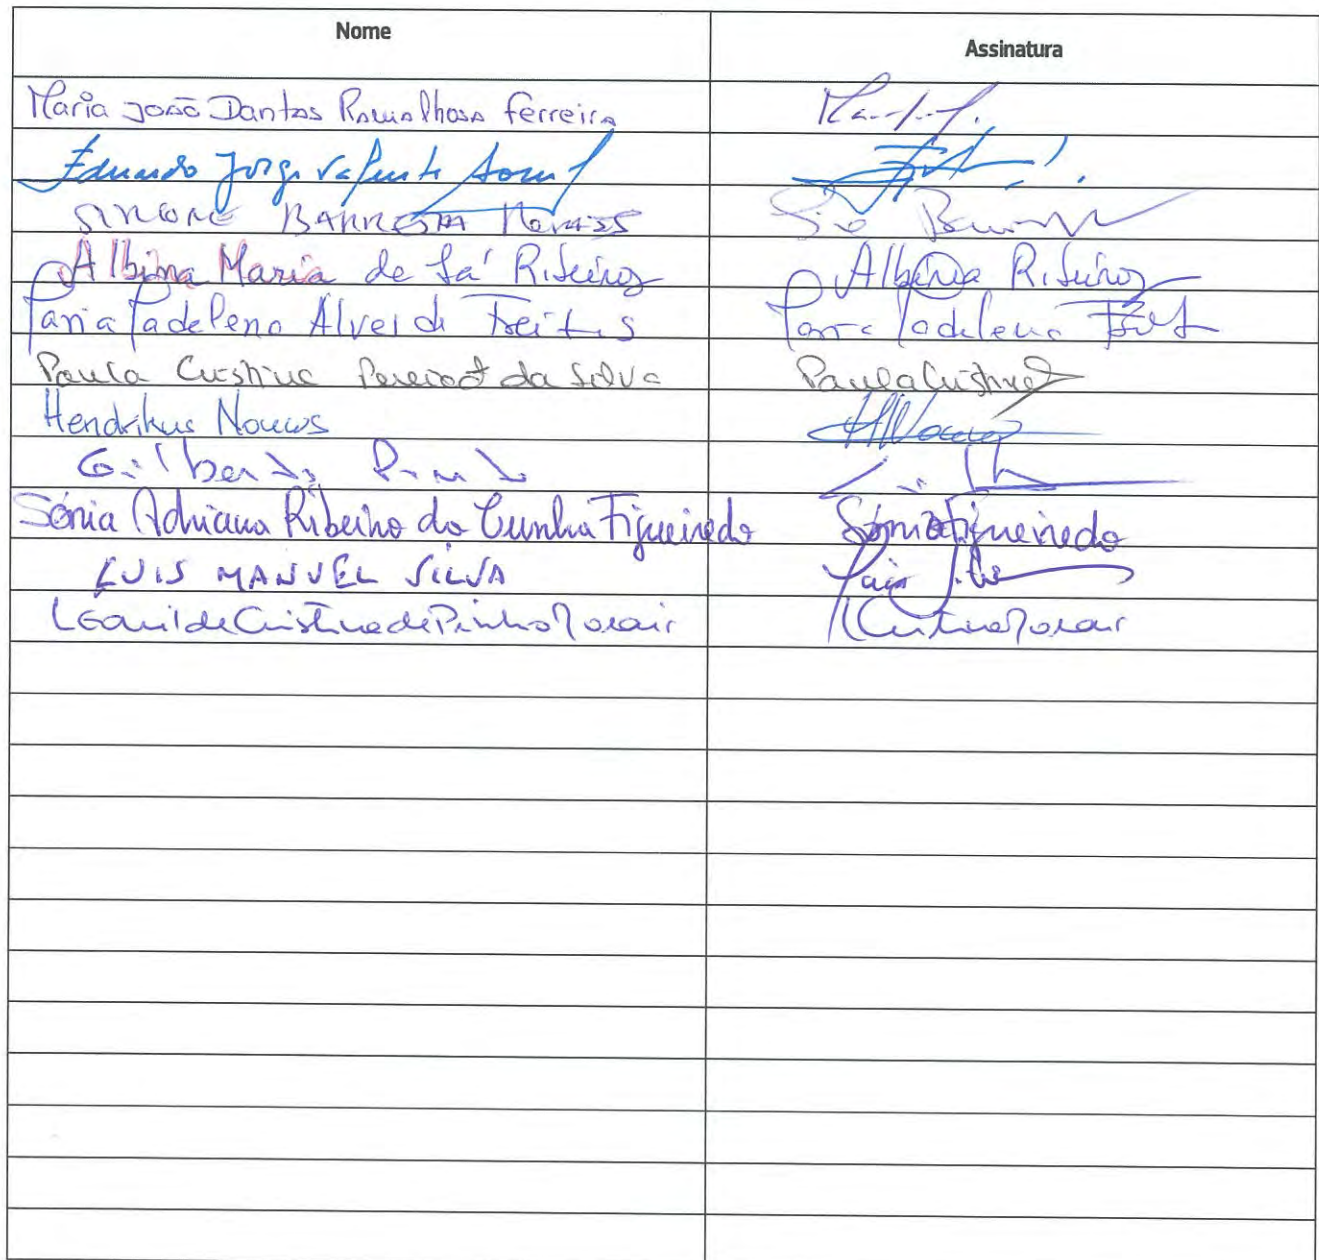 Nome Assinatura
Maria João Dantas Ramalhosa Ferreira
Eduardo Jorge Valente
SIMONE BARREIRA MORAIS
Albina Maria de Sá Ribeiro Albina Ribeiro
Maria Madalena Alves de Freitas Maria Madalena
Paula Cristina Pereira da Silva Paula Cristina
Hendrikus Nouws HNouws
Gilberto Pinto
Sónia Adriana Ribeiro da Cunha Figueiredo Sónia Figueiredo
LUIS MANUEL SILVA
Leonilde Cristina de Pinho Morais Cristina Morais